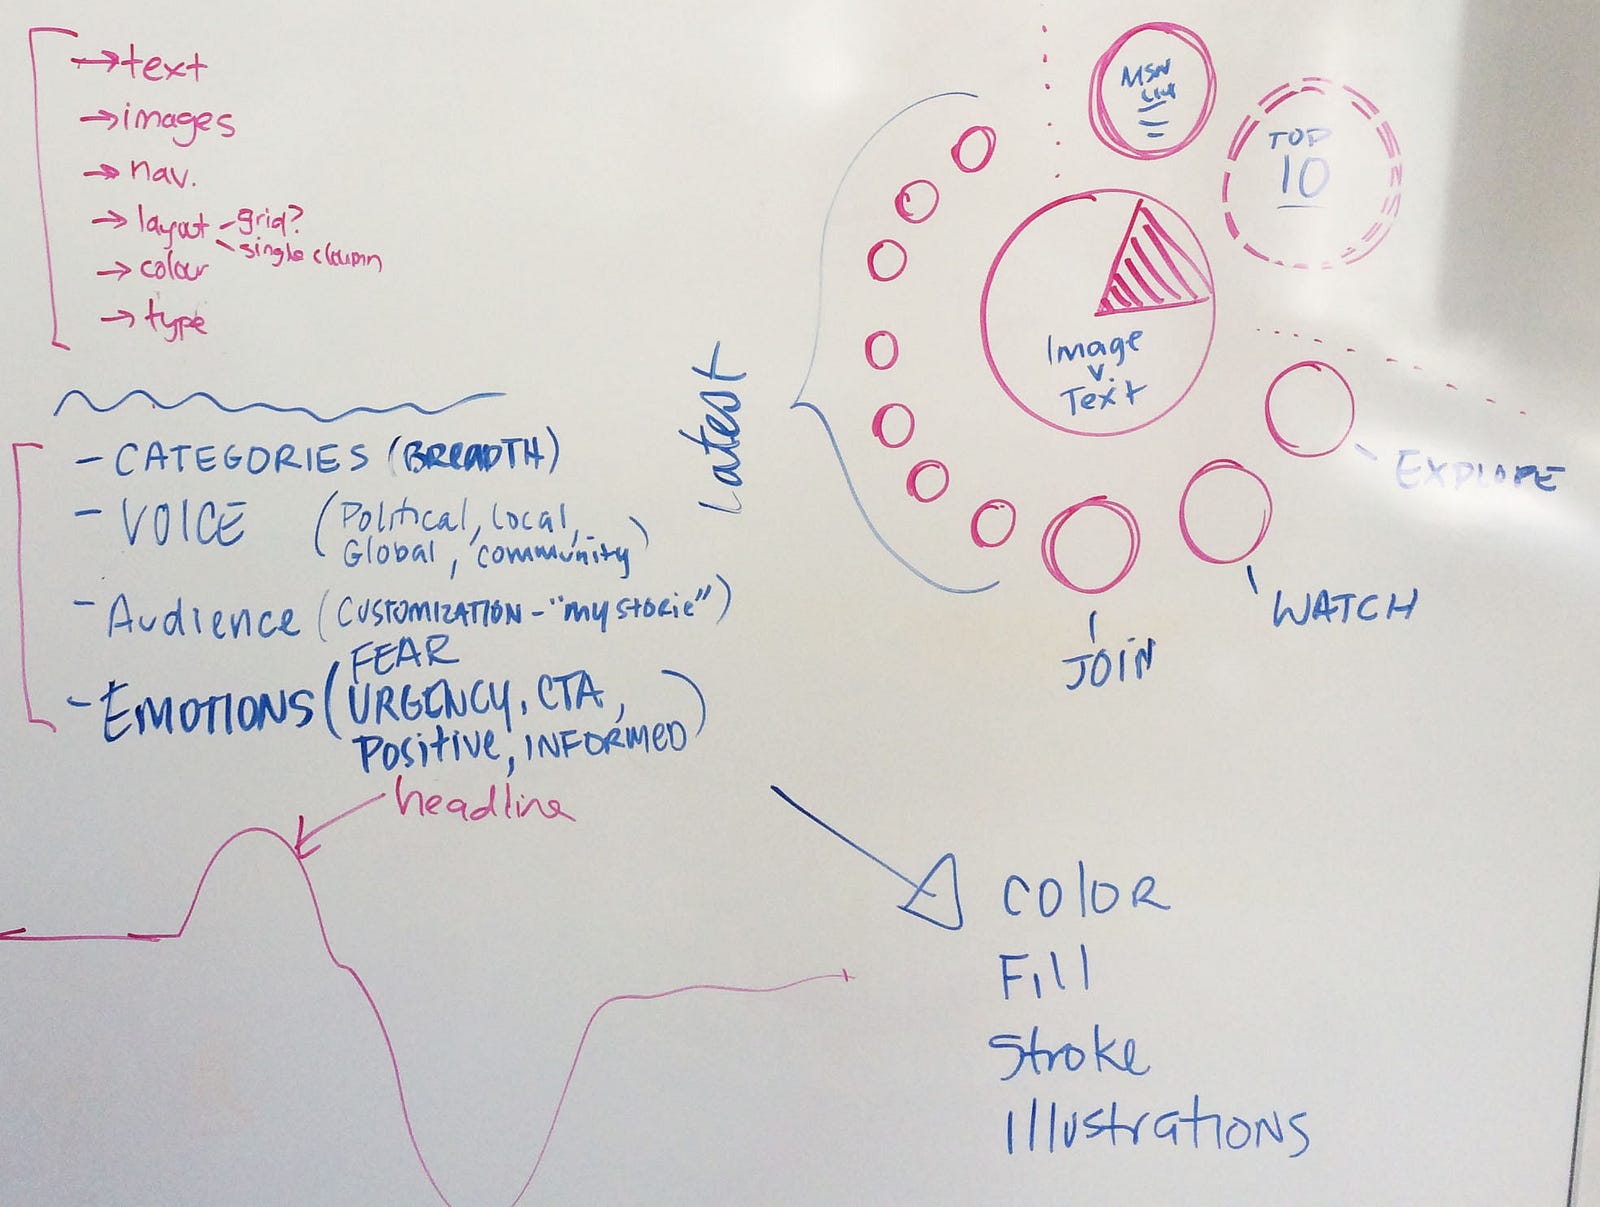 →text
→images
→nav.
→layout - grid?
- single cloumn
→colour
→type
- CATEGORIES (BREADTH)
- VOICE (Political, local,
Global, community)
- Audience (CUSTOMIZATION - "my storie")
FEAR
- EMOTIONS (URGENCY, CTA,
Positive, INFORMED)
headline
Latest
MSN
TOP
10
Image
v.
Text
EXPLORE
WATCH
JOIN
COLOR
Fill
Stroke
Illustrations